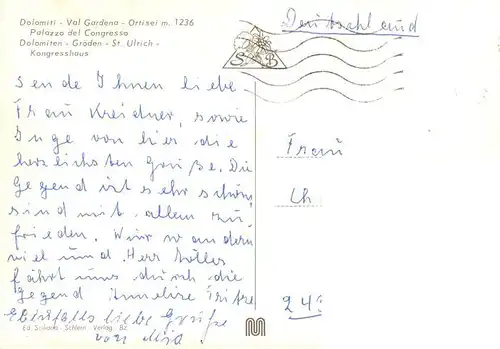 Dolomiti - Val Gardena - Ortisei m. 1236
Palazzo del Congresso
Dolomiten - Gröden - St. Ulrich -
Kongresshaus
Deutschland
S B
sende Ihnen liebe
Frau Kreidner, sowie
Inge von hier die
herzlichsten Grüße. Die
Gegend ist sehr schön
sind mit allem zu-
frieden. Wir wandern
viel und Herr
fährt uns durch die
Gegend Annelise
Ebenfalls liebe Grüße
von
Frau
Ch
24
Verlag BZ